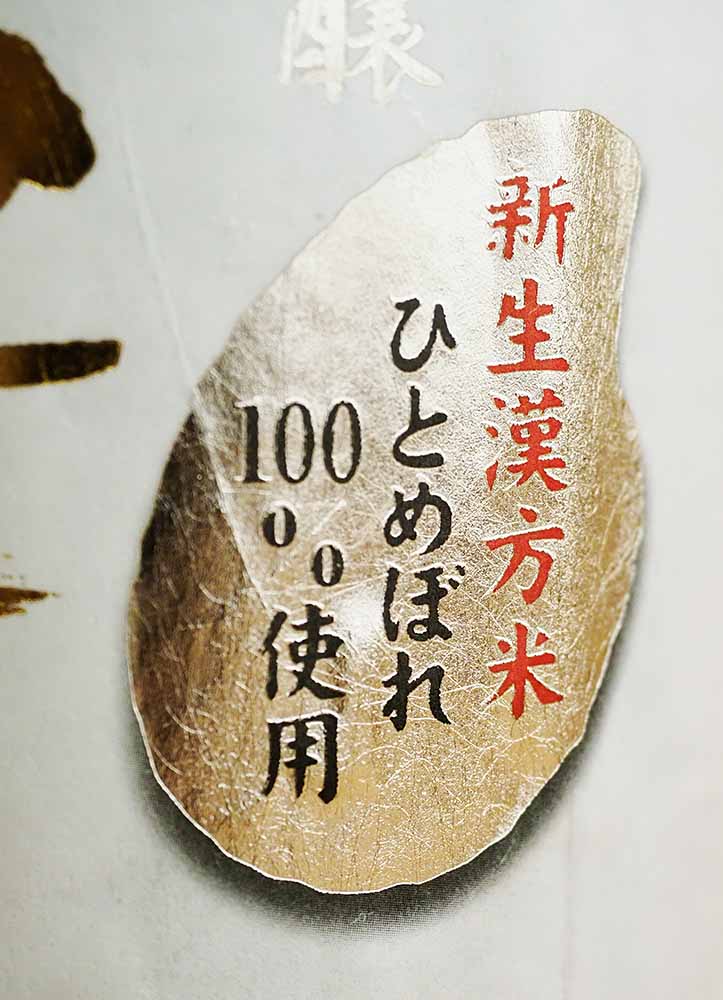 醸
新生漢方米
ひとめぼれ
100%使用